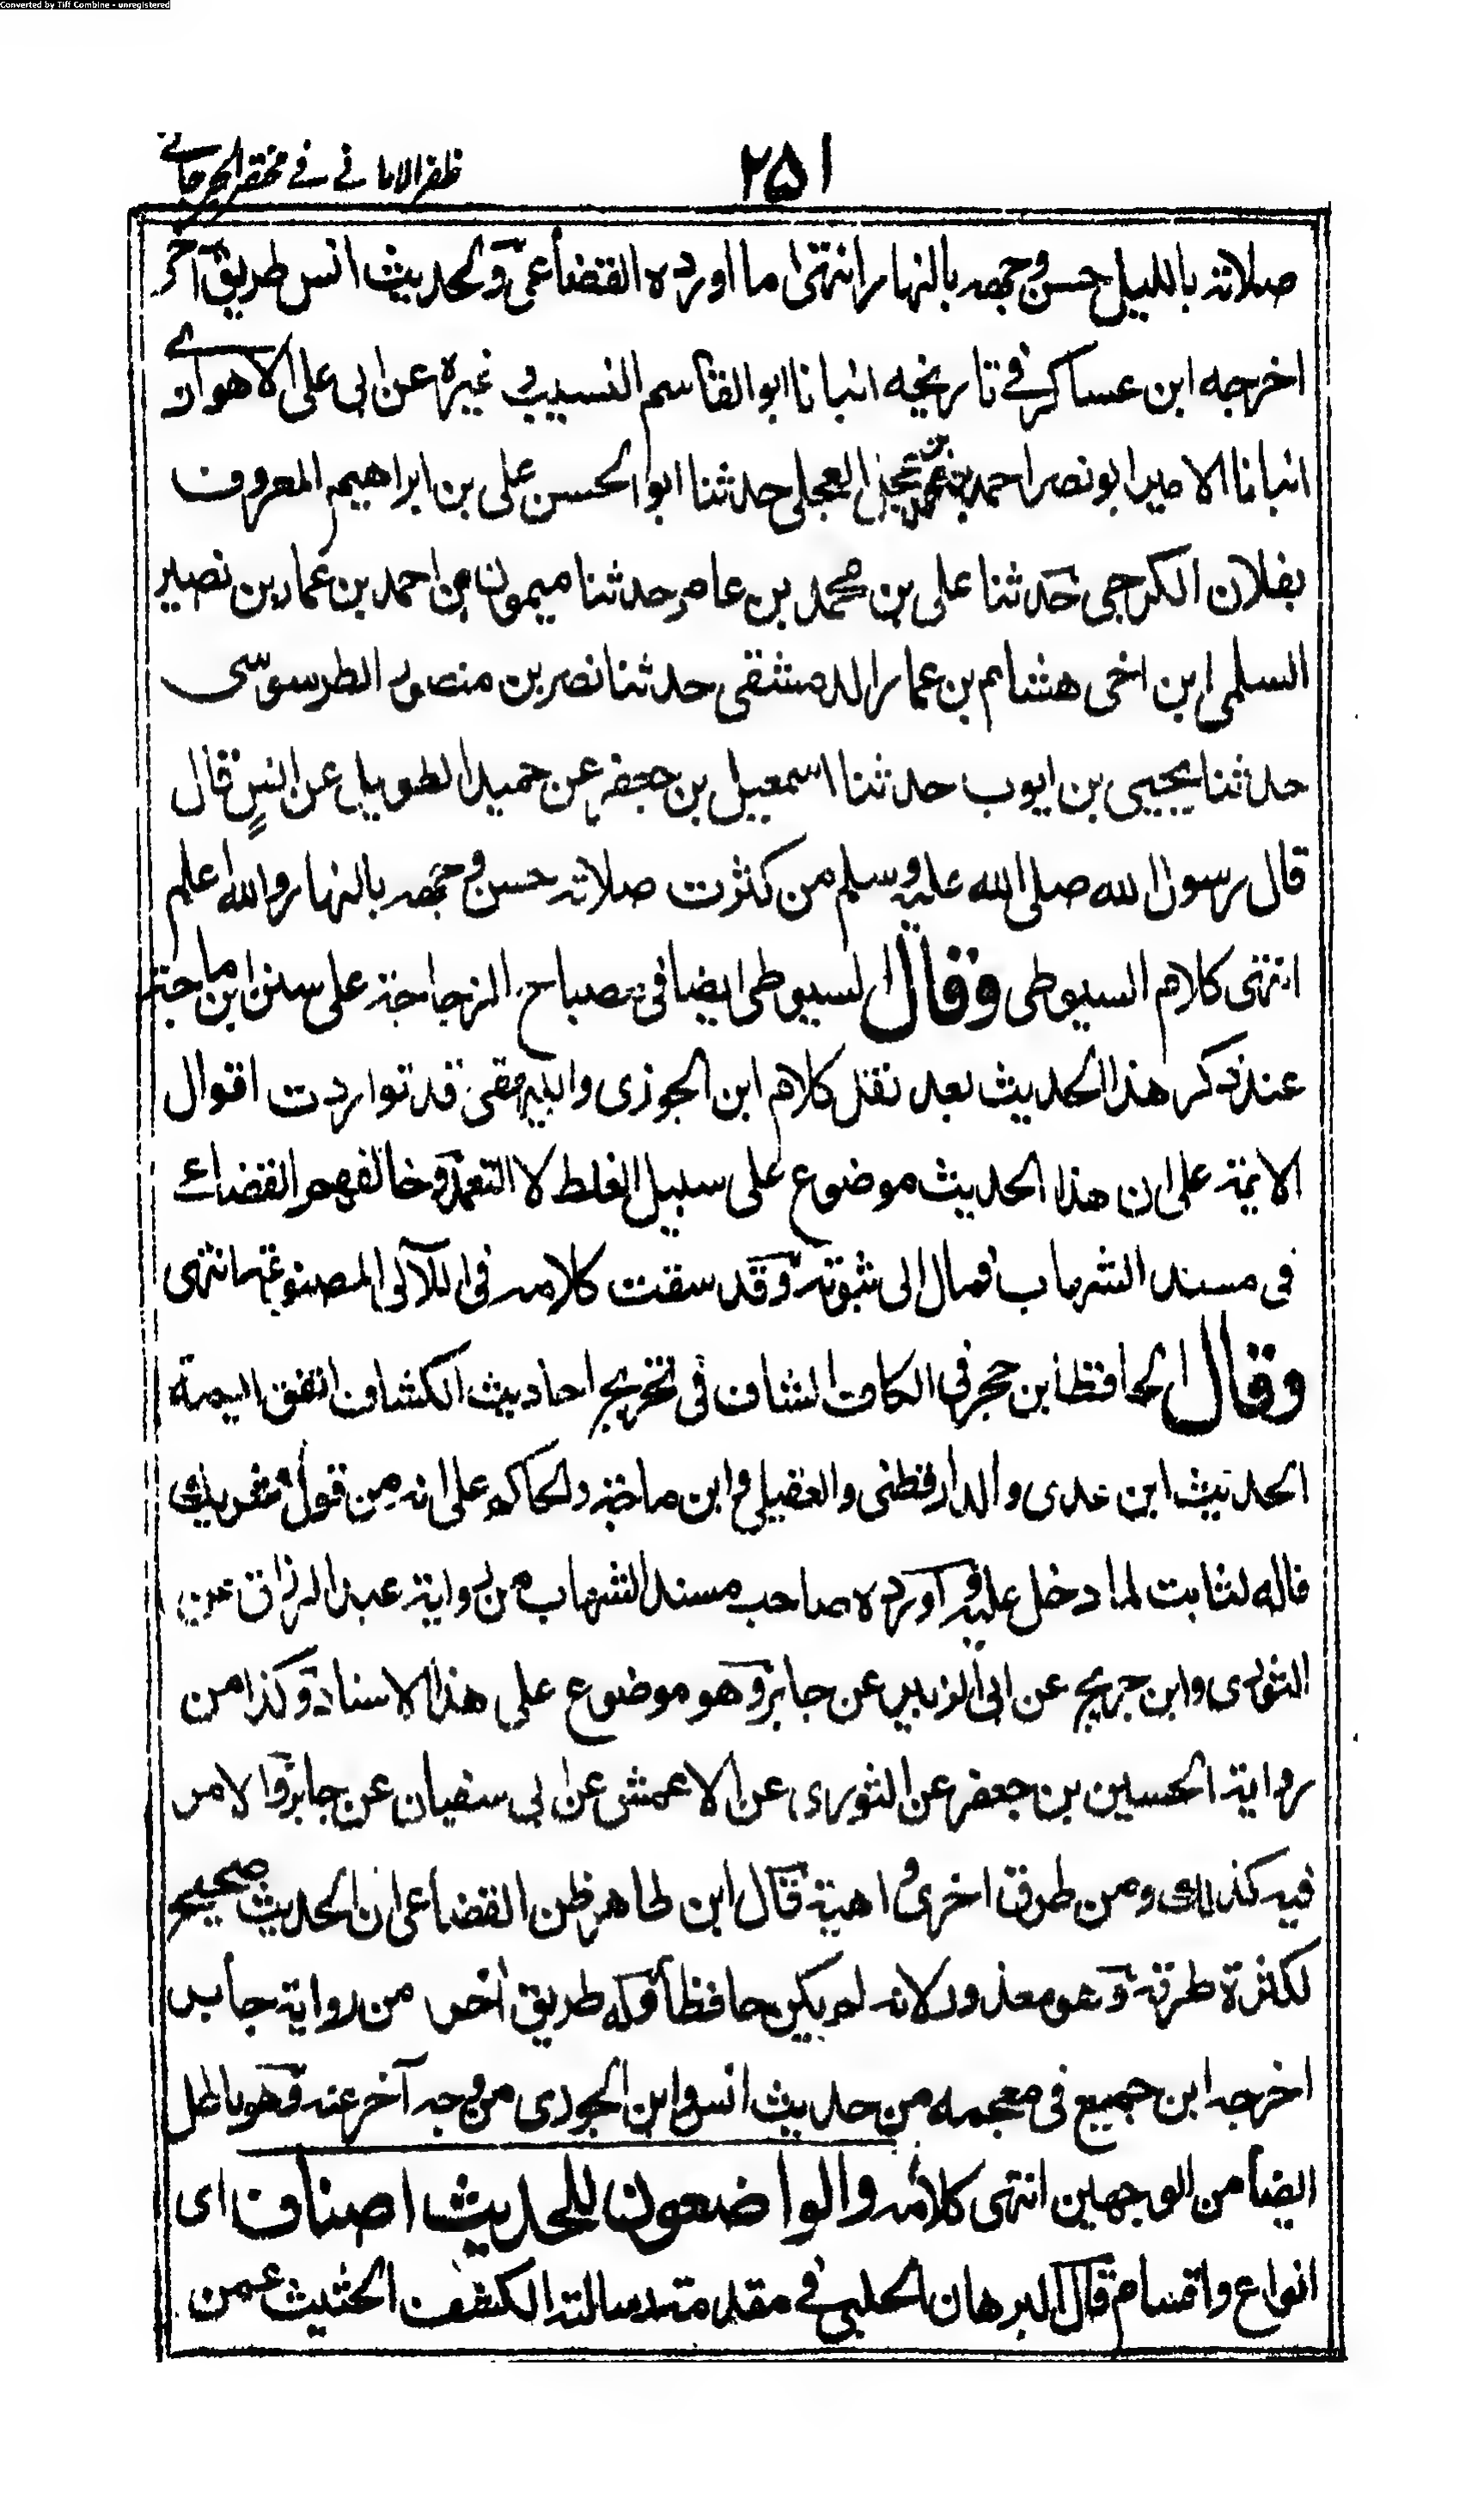 Converted by Tiff Combine - unregistered
ظفر الامانی فی مختصر الجرجانی
۲۵۱
صلاته بالليل حسن وجهه بالنهار انتهى ما اورده القضاعى ولحديث انس طريق آخر
اخرجه ابن عساكر فے تاريخه انبانا ابو القاسم النسيب وغيره عن ابى على الاهوازے
انبانا الامير ابو نصر احمد بن العجلى حدثنا ابو الحسن على بن ابراهيم المعروف
بفلان الكرجى حدثنا على بن محمد بن عامر حدثنا ميمون بن احمد بن عمار بن نصير
السلمى ابن اخى هشام بن عمار الدمشقى حدثنا نصر بن منصور الطرسوسى
حدثنا يحيى بن ايوب حدثنا اسمعيل بن جعفر عن حميد الطويل عن انس قال
قال رسول الله صلى الله عليه وسلم من كثرت صلاته حسن وجهه بالنهار والله اعلم
انتهى كلام السيوطى وقال السيوطى ايضا فى مصباح الزجاجة على سنن ابن ماجة
عند ذكر هذا الحديث بعد نقل كلام ابن الجوزى والبيهقى قد تواردت اقوال
الايمة على ان هذا الحديث موضوع على سبيل الغلط لا التعمد وخالفهم القضاعے
فى مسند الشهاب فمال الى ثبوته وقد سقت كلامه فى اللآلى المصنوعة انتهى
وقال الحافظ ابن حجر فى الكاف الشاف فى تخريج احاديث الكشاف اتفق ايمة
الحديث ابن عدى والدارقطنى والعقيلى وابن ماجة والحاكم على انه من قول شريك
قاله لثابت لما دخل عليه واورده صاحب مسند الشهاب من رواية عبد الرزاق عن
الثورى وابن جريج عن ابى الزبير عن جابر وهو موضوع على هذا الاسناد وكذا من
رواية الحسين بن جعفر عن الثورى عن الاعمش عن ابى سفيان عن جابر والامر
فيه كذلك ومن طرق اخرى واهية قال ابن طاهر ظن القضاعى ان الحديث صحيح
لكثرة طرقه وهو معذور لانه لم يكن حافظا وله طريق اخر من رواية جابر
اخرجه ابن جميع فى معجمه من حديث انس وابن الجوزى من وجه آخر عنه وهو باطل
ايضا من الوجهين انتهى كلامه والواضعون للحديث اصناف اى
انواع واقسام قال البرهان الحلبى فے مقدمة رسالته الكشف الحثيث عمن